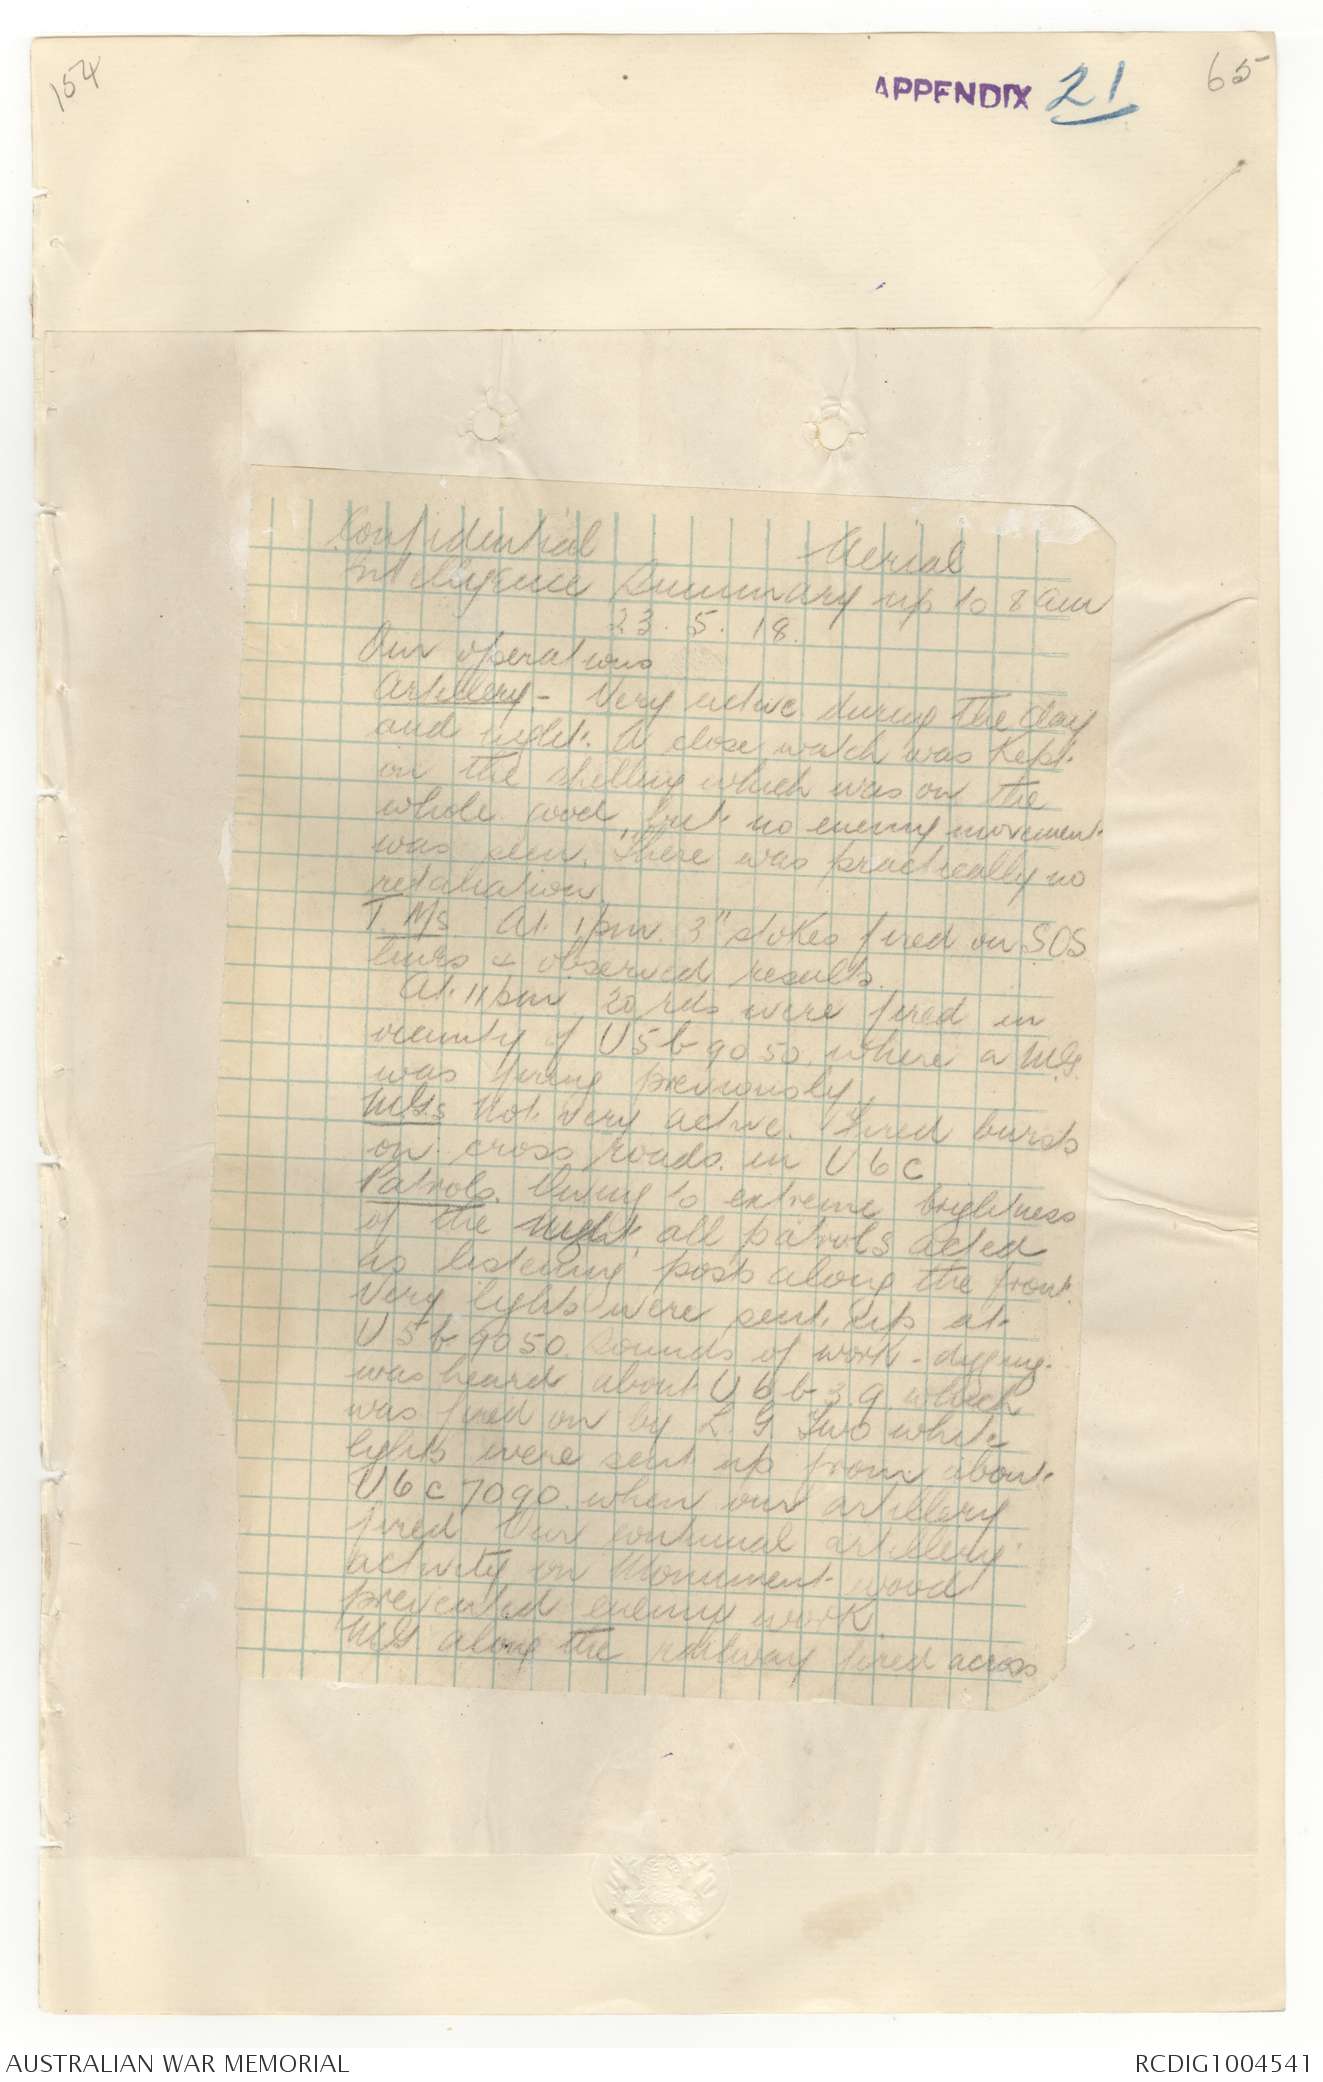 154
APPENDIX 21
65
Confidential Aerial
Intelligence Summary up to 8 am
23. 5. 18.
Our operations
Artillery - Very active during the day
and night. A close watch was kept
on the shelling which was on the
whole good but no enemy movement
was seen. There was practically no
retaliation
T. Ms At 1 pm 3" stokes fired on SOS
lines & observed results.
At 11 pm 20 rds were fired in
vicinity of U5b 90 50. where a M.G.
was firing previously.
MGs Not very active. Fired bursts
on cross roads in U 6 c
Patrols. Owing to extreme brightness
of the night, all patrols acted
as listening posts along the front.
Very lights were sent up at
U 5 b 90 50 Sounds of work - digging.
was heard about U 6 b 3.9. which
was fired on by L. G. Two white
lights were sent up from about
U 6 c 70 90. when our artillery
fired Our continual artillery
activity on Monument wood
prevented enemy work.
MG along the railway fired across
AUSTRALIAN WAR MEMORIAL
RCDIG1004541